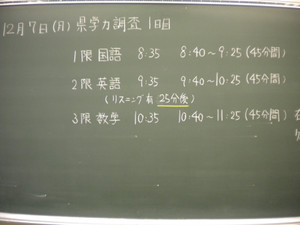 12月7日(月) 県学力調査 1日目
1限 国語 8:35 8:40～9:25 (45分間)
2限 英語 9:35 9:40～10:25 (45分間)
(リスニング有 25分後)
3限 数学 10:35 10:40～11:25 (45分間)